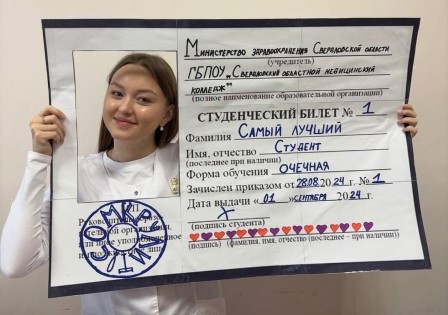 Министерство здравоохранения Свердловской области
(учредитель)
ГБПОУ „Свердловский областной медицинский
колледж"
(полное наименование образовательной организации)
СТУДЕНЧЕСКИЙ БИЛЕТ № 1
Фамилия Самый лучший
Имя, отчество Студент
(последнее при наличии)
Форма обучения очечная
Зачислен приказом от 28.08.2024 г. № 1
Дата выдачи «01» сентября 2024 г.
(подпись студента)
(подпись) (фамилия, имя, отчество (последнее – при наличии))
МП
Руководитель
организации,
или иное